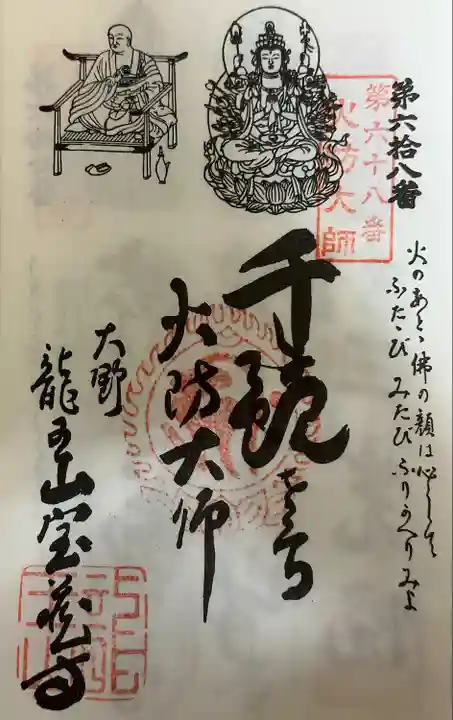 第六拾八番
第六十八番
火防大師
火のあと佛の顔は心して
ふたゝび みたび ふりかへりみよ
千観
火防大師
大野
龍王山宝蔵寺